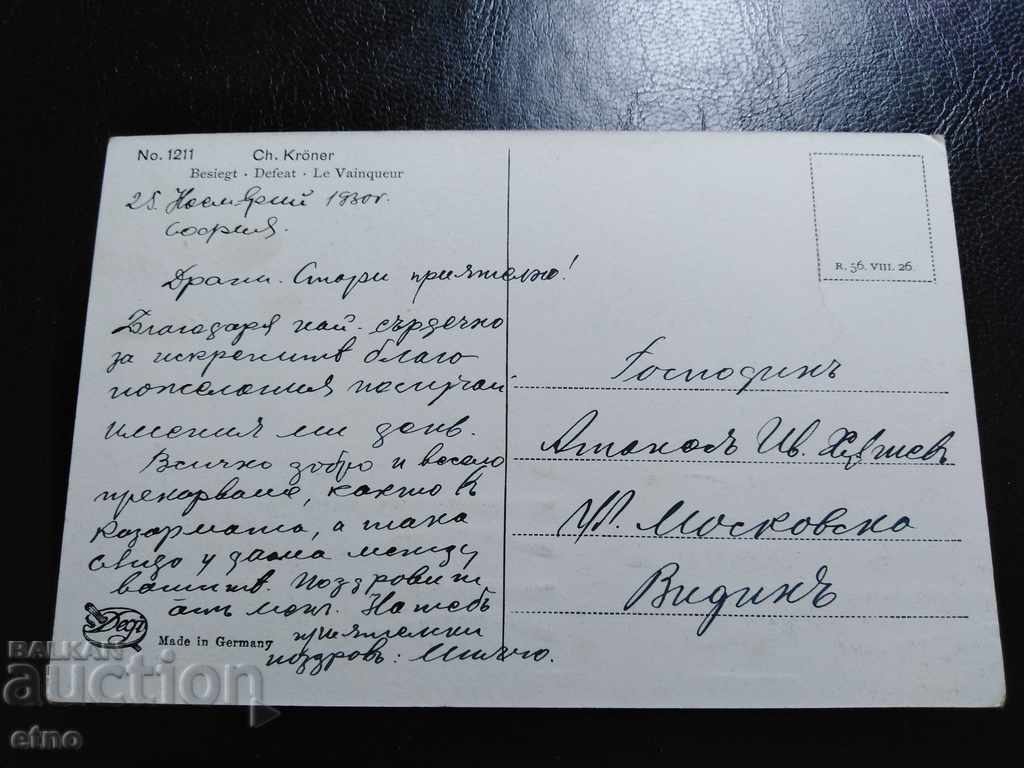 No. 1211 Ch. Kröner
Besiegt · Defeat · Le Vainqueur
25. Ноемврий 1930г.
София.
Драги. Стари приятелю!
Благодаря най-сърдечно
за искренитѣ благо
пожелания послучай
имения ми день.
Всичко добро и весело
прекарване, както въ
казармата, а така
също у дома между
вашитѣ. Поздрови и
отъ мен. На тебъ
приятелски
поздравъ: Минчо.
Degi
Made in Germany
R. 56. VIII. 26.
Господинъ
Атанасъ Ив.
Ул. Московска
Видинъ
BALKAN
auction
etno